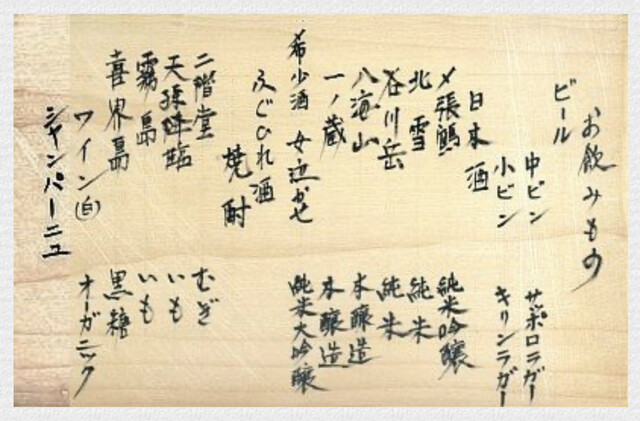 お飲みもの
ビール
中ビン サッポロラガー
小ビン キリンラガー
日本酒
〆張鶴 純米吟醸
北雪 純米
谷川岳 純米
八海山 本醸造
一ノ蔵 本醸造
希少酒 女泣かせ 純米大吟醸
ふぐひれ酒
焼酎
二階堂 むぎ
天孫降臨 いも
霧島 いも
喜界島 黒糖
ワイン(白) オーガニック
シャンパーニュ